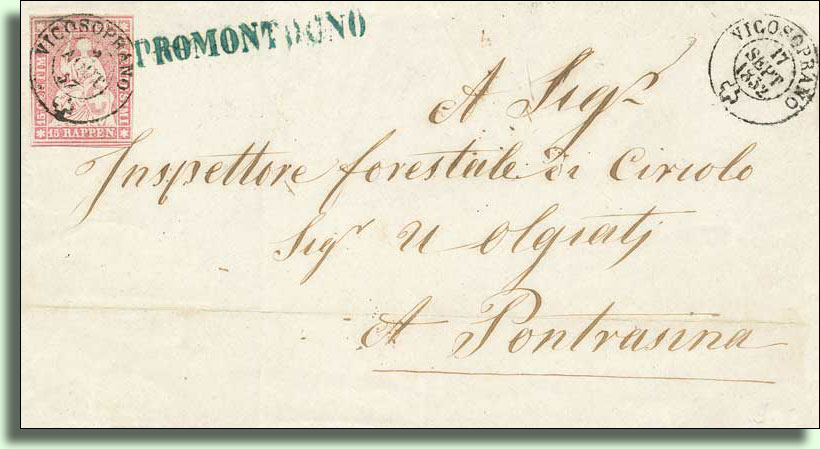 VICOSOPRANO
15 RAPPEN
PROMONTOGNO
VICOSOPRANO
17
SEPT
1852
A Sigr
Inspettore forestale di Circolo
Sigr U Olgiati
A Pontrasina